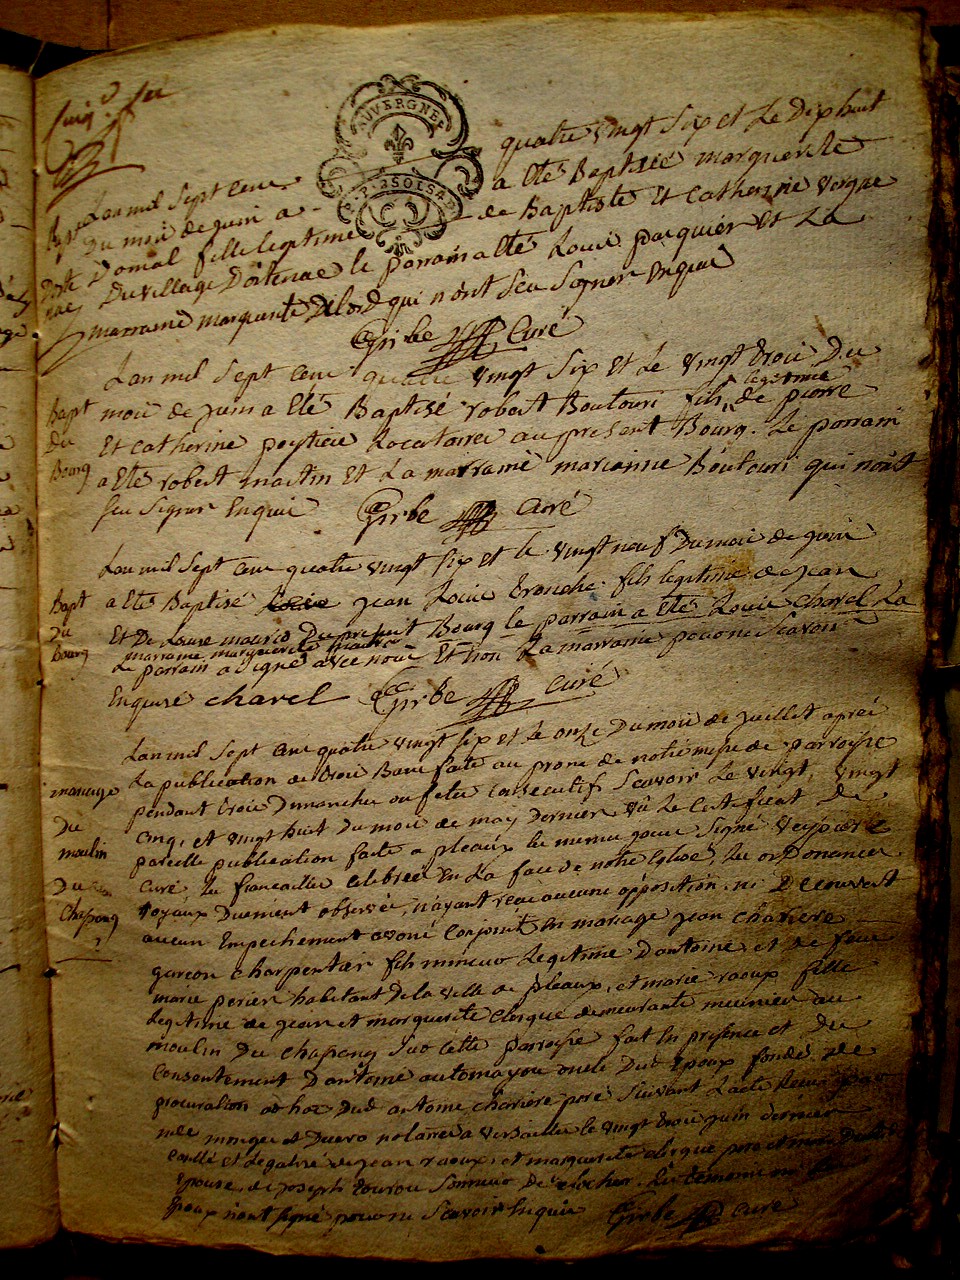 AUVERGNE
Lan mil Sept Cens quatre vingt Six et Le Dixhuit
Du moi de juin a Eté Baptisée marguerite
Domal fille legitime de Baptiste Et Catherine vergne
Du village le parrain a Eté Louis pasquier et La
marraine marguerite Delord qui n'ont Seu Signer Enquis
Girbe Curé
Lan mil Sept Cens quatre vingt Six Et Le vingt trois Du
legitime
Bapt moi de juin a Eté Baptisé robert Boutouri fils de pierre
du Et Catherine Locataires au present Bourg. Le parrain
Bourg a Eté robert martin Et La marraine marianne Boutouri qui n'ont
Seu Signer Enquis Girbe Curé
Lan mil Sept Cens quatre vingt Six et le vingt neuf Du moi de juin
Bapt a Eté Baptisé jean Louis tronche fils legitime de jean
Du Et De Du present Bourg le parrain a Eté Louis Chavel La
Bourg marraine marguerite
Le parrain a Signé avec nous Et non La marraine pour ne Scavoir
Enquise chavel Girbe Curé
Lan mil Sept Cens quatre vingt Six et Le onze Du moi de juillet aprés
mariage La publication de trois Bans faite au prone de notre messe de parroisse
pendant trois Dimanches ou fetes Consecutifs Scavoir Le vingt, vingt
Du Cinq, et vingt huit Du moi de may Dernier vû Le Certificat de
moulin pareille publication faite a pleaux les memes jours Signé
Du Curé les fiancailles Celebrées En La face de notre Eglise, Les ordonances
Chapang royaux Duement observées, n'ayant recu aucune opposition ni Decouvert
aucun Empechement avons Conjoint En mariage jean Chariere
garcon charpentier fils mineur Legitime D'antoine et de feue
marie perier habitant De la ville de pleaux, et marie raoux fille
Legitime de jean et marguerite Clergue demeurante meunier au
moulin Du Chapang Sur Cette parroisse fait En presence et Du
Consentement D'antoine oncle Dud. Epoux fondé de
procuration ad hoc Dud. antoine Chariere pere Suivant Lacte recu par
me et notaires a le vingt trois juin dernier
et de jean raoux, et marguerite Clergue pere et mere De
Epouse, de joseph Sonneur De Clocher. Les temoins ni Les
Epoux n'ont Signé pour ne Scavoir Enquis Girbe Curé